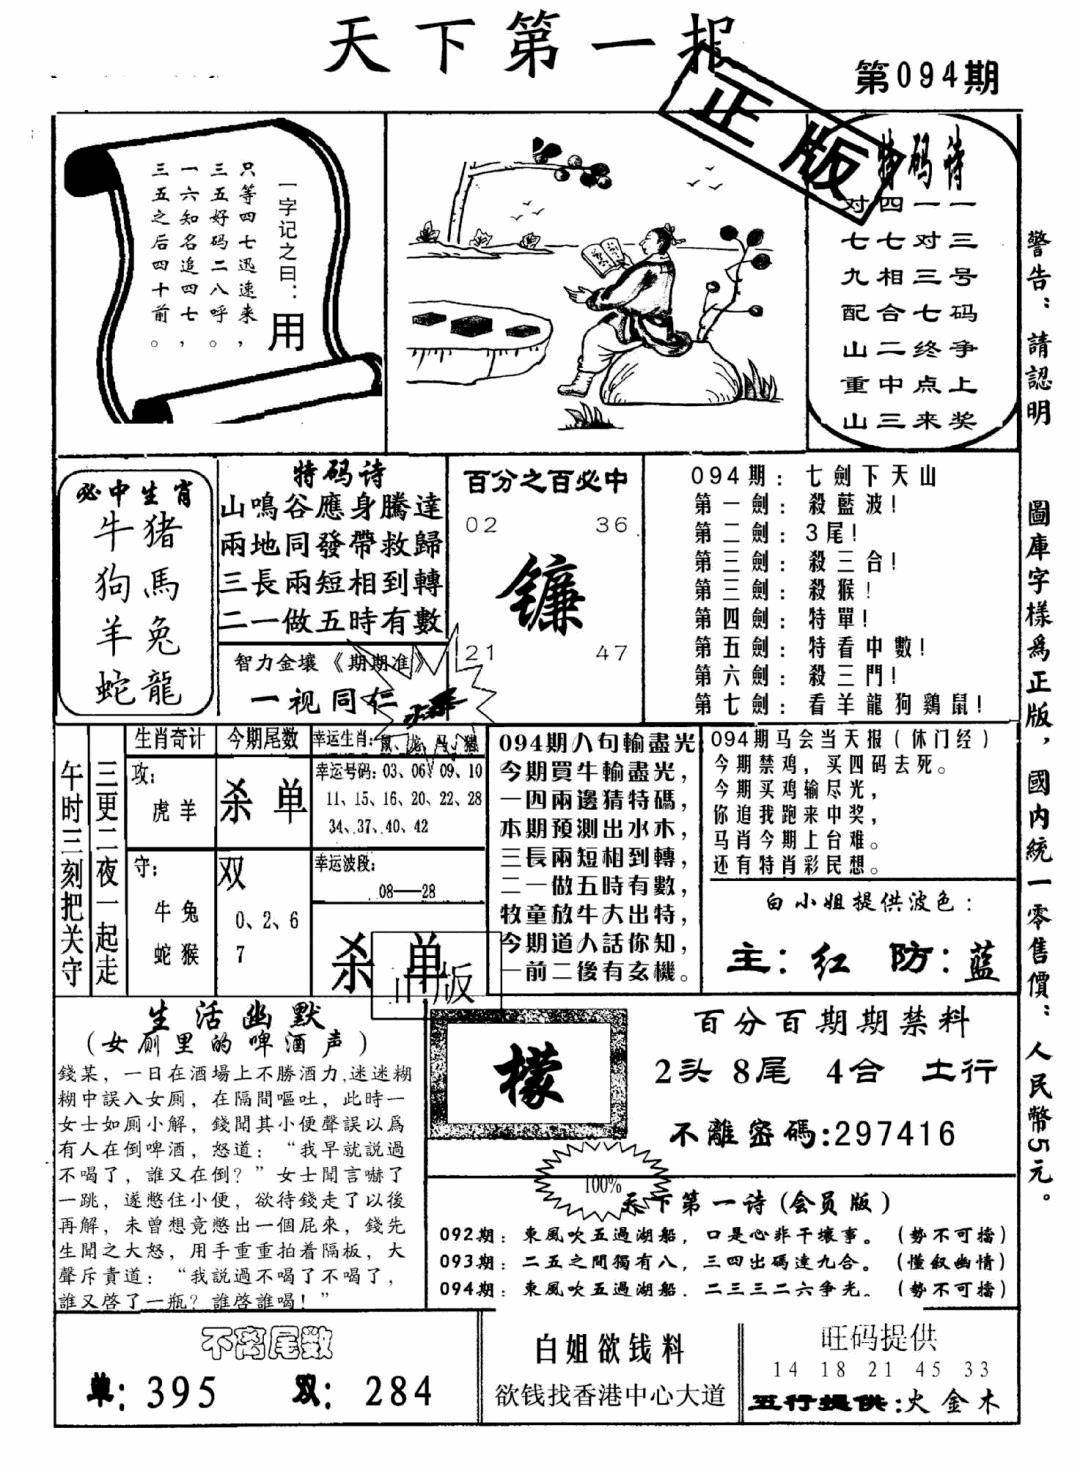 天下第一报
第094期
正版
一字记之曰：用
只等四七迅速来，
三五好码二八呼。
一六知名追四七，
三五之后四十前。
特码诗
对四一一
七七对三
九相三号
配合七码
山二终争
重中点上
山三来奖
警告：請認明
圖庫字樣爲正版，國内統一零售價：人民幣5元。
必中生肖
牛猪
狗馬
羊兔
蛇龍
特码诗
山鳴谷應身騰達
兩地同發帶救歸
三長兩短相到轉
二一做五時有數
智力金壤《期期准》
一视同仁
百分之百必中
02 36
镰
21 47
094期：七劍下天山
第一劍：殺藍波！
第二劍：3尾！
第三劍：殺三合！
第三劍：殺猴！
第四劍：特單！
第五劍：特看中數！
第六劍：殺三門！
第七劍：看羊龍狗鷄鼠！
午时三刻把关守
三更二夜一起走
生肖奇计
攻：
虎羊
守：
牛兔
蛇猴
今期尾数
杀单
双
0、2、6
7
幸运生肖：鼠、龙、马、猴
幸运号码：03、06、09、10
11、15、16、20、22、28
34、37、40、42
幸运波段：
08——28
杀单
正版
094期八句輸盡光
今期買牛輸盡光，
一四兩邊猜特碼，
本期預測出水木，
三長兩短相到轉，
二一做五時有數，
牧童放牛大出特，
今期道人話你知，
一前二後有玄機。
094期马会当天报（休门经）
今期禁鸡，买四码去死。
今期买鸡输尽光，
你追我跑来中奖，
马肖今期上台难。
还有特肖彩民想。
白小姐提供波色：
主：红 防：蓝
生活幽默
（女厕里的啤酒声）
錢某，一日在酒場上不勝酒力,迷迷糊
糊中誤入女厠，在隔間嘔吐，此時一
女士如厠小解，錢聞其小便聲誤以爲
有人在倒啤酒，怒道：“我早就説過
不喝了，誰又在倒？”女士聞言嚇了
一跳，遂憋住小便，欲待錢走了以後
再解，未曾想竟憋出一個屁來，錢先
生聞之大怒，用手重重拍着隔板，大
聲斥責道：“我説過不喝了不喝了，
誰又啓了一瓶？誰啓誰喝！”
檬
百分百期期禁料
2头 8尾 4合 土行
不離密碼:297416
100%
天下第一诗（会员版）
092期：東風吹五過湖船，口是心非干壞事。（勢不可擋）
093期：二五之間獨有八，三四出碼達九合。（懂叙幽情）
094期：東風吹五過湖船．二三三二六争光。（勢不可擋）
不离尾数
单：395 双：284
白姐欲钱料
欲钱找香港中心大道
旺码提供
14 18 21 45 33
五行提供:火金木